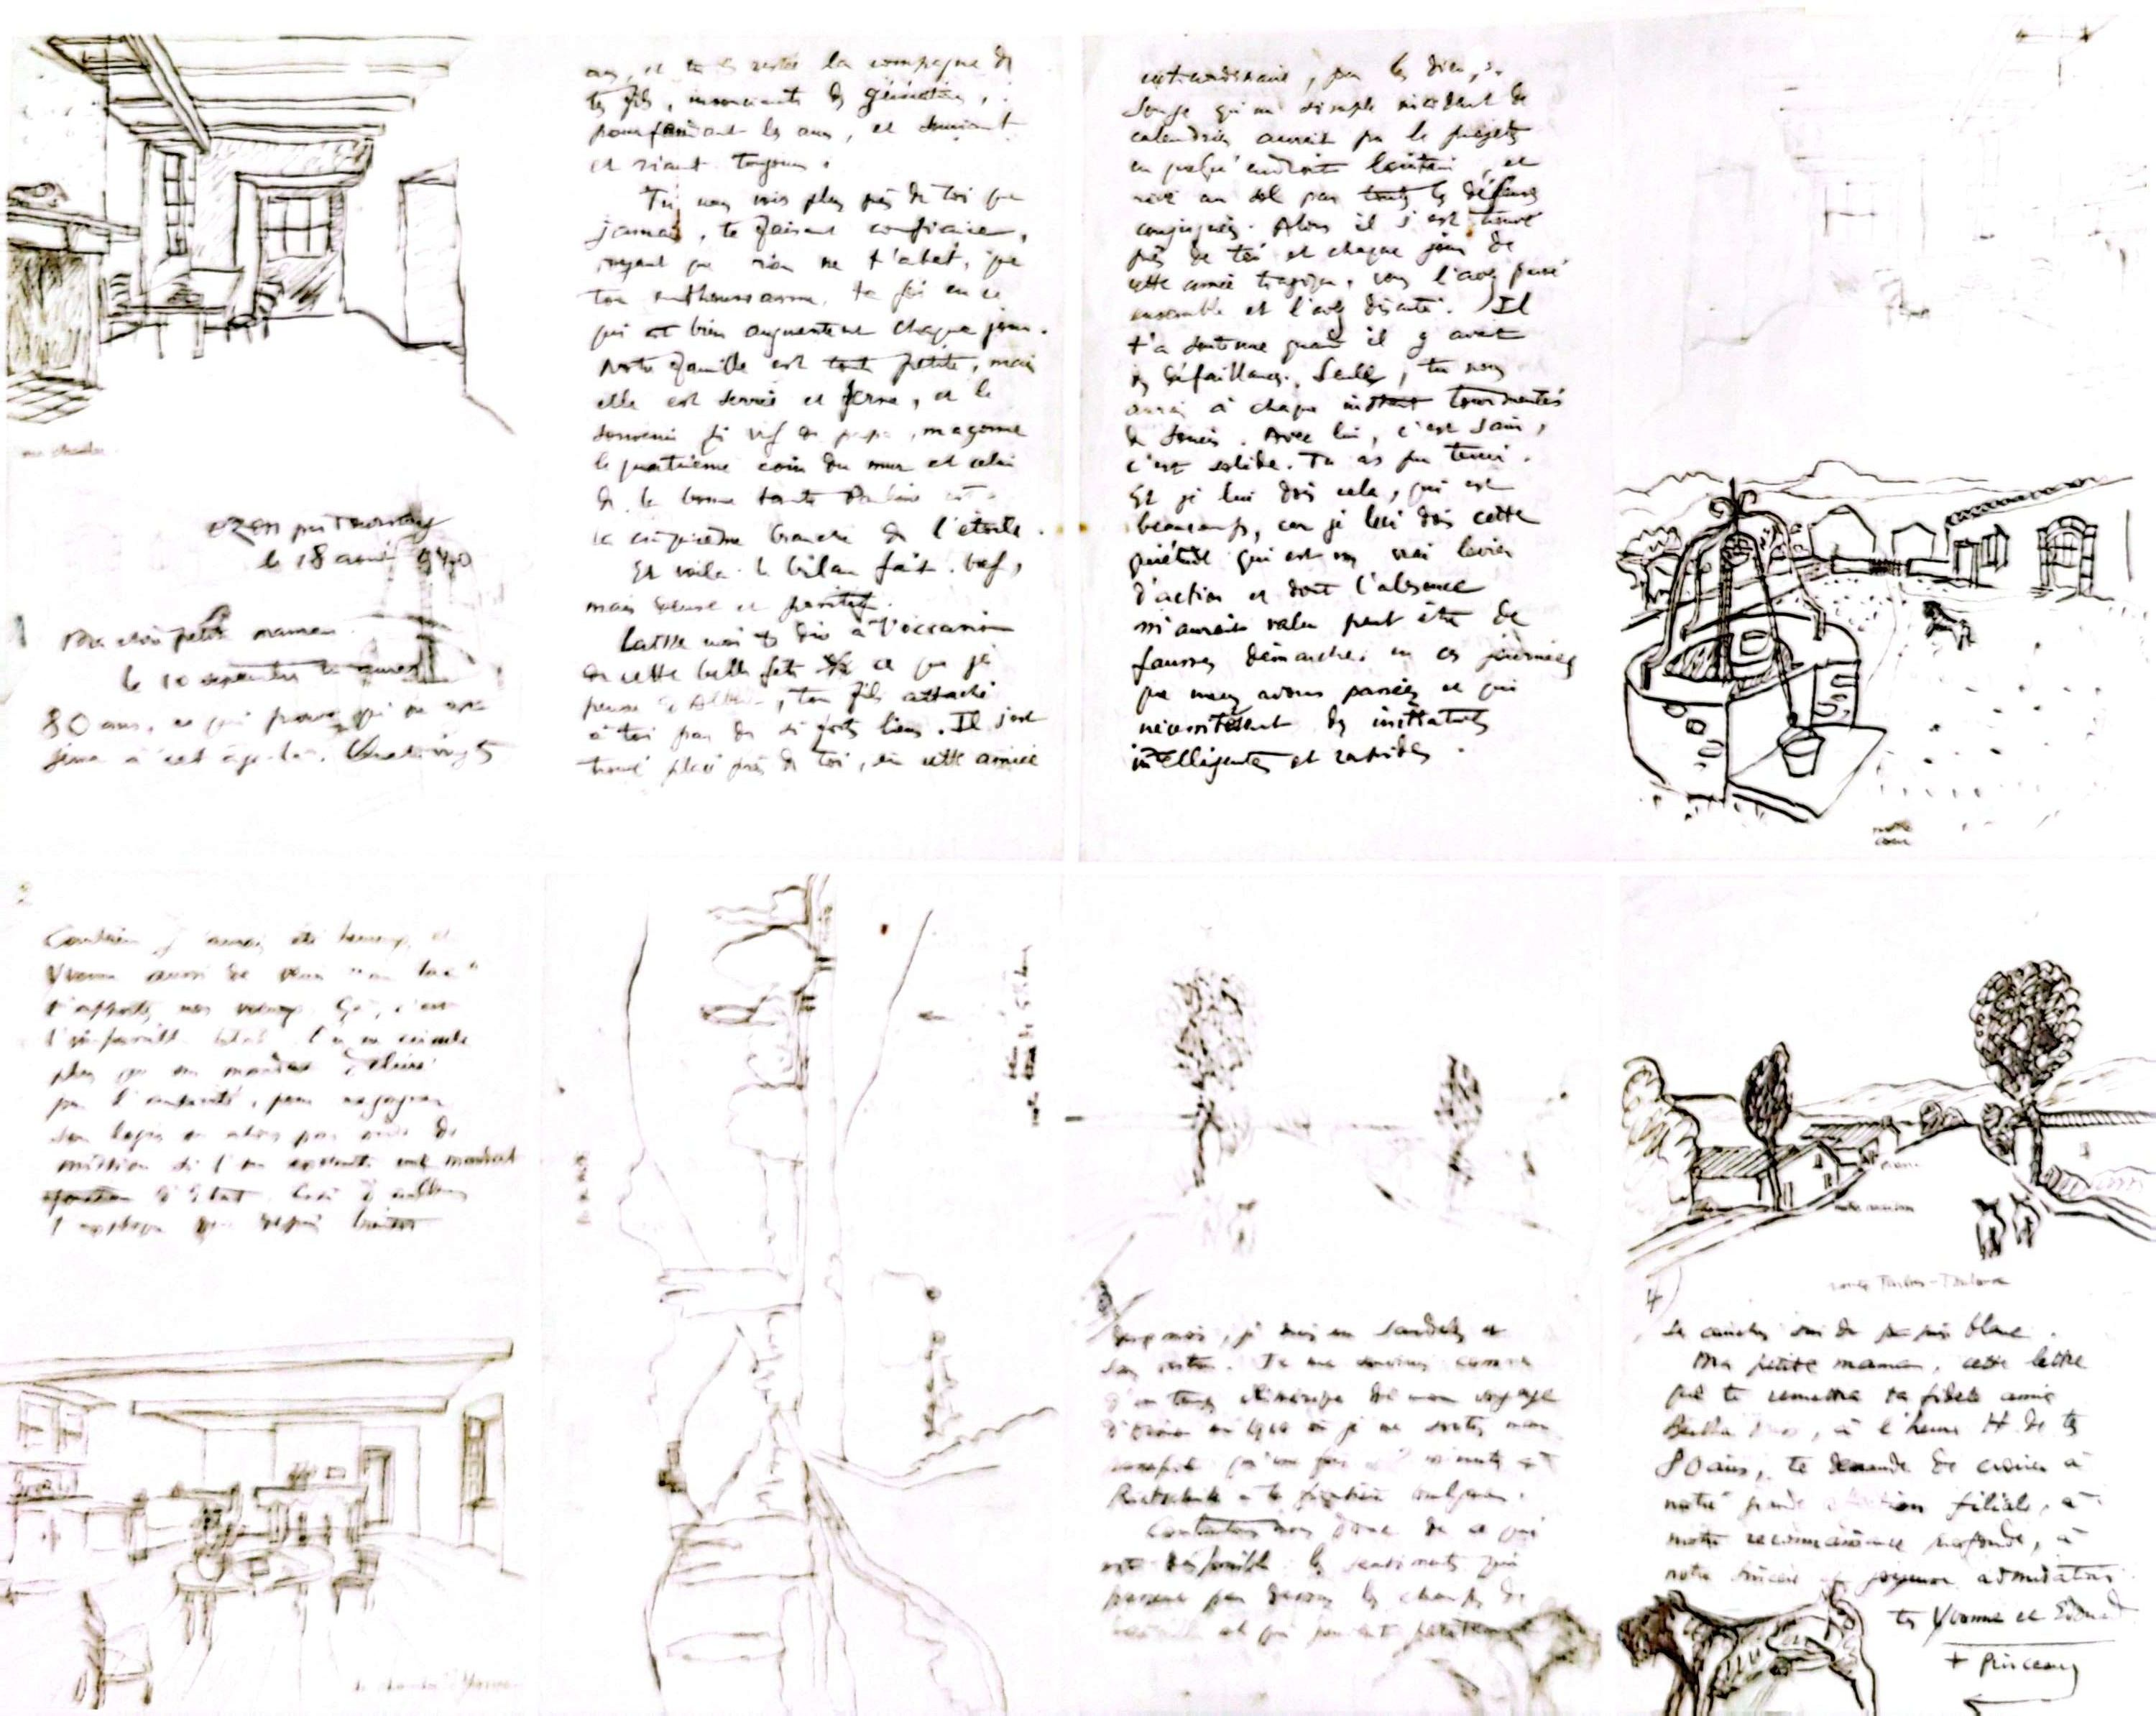 ma chambre
Ozon par Tournay
le 18 août 1940
Ma chère petite maman
le 10 septembre tu auras
80 ans, ce qui prouve qu'on est
jeune à cet âge-là. Quatre-vingts
ans, et tu es restée la compagne de
tes fils, insouciants des générations,
pourfendant les ans, et souriant
et riant toujours.
Tu nous vois plus près de toi que
jamais, te faisant confiance,
voyant que rien ne t'abat, que
ton enthousiasme, ta foi en ce
qui est bien augmentent chaque jour.
Notre famille est toute petite, mais
elle est serrée et ferme, et le
souvenir si vif de papa, maçonne
le quatrième coin du mur et celui
de la bonne tante Pauline est
la cinquième branche de l'étoile.
Et voilà le bilan fait. bref,
mais dense et positif.
Laisse moi te dire à l'occasion
de cette belle fête ce que je
pense d'Albert, ton fils attaché
à toi par de si forts liens. Il s'est
trouvé placé près de toi, en cette année
extraordinaire, par les dieux.
Songe qu'un simple incident de
calendrier aurait pu le projeter
en quelqu'endroit lointain, et
rivé au sol par toutes les défenses
conjuguées. Alors il s'est trouvé
près de toi et chaque jour de
cette année tragique, vous l'avez passé
ensemble et l'avez discuté. Il
t'a soutenue quand il y avait
des défaillances. Seule, tu nous
aurais à chaque instant tourmentés
de soucis. Avec lui, c'est sain,
c'est solide. Tu as pu tenir.
Et je lui dois cela, qui est
beaucoup, car je lui dois cette
quiétude qui est un vrai levier
d'action et dont l'absence
m'aurait valu peut être de
fausses démarches en ces journées
que nous avons passées et qui
nécessitaient des initiatives
intelligentes et rapides.
notre
cour
Combien j'aurais été heureux, et
Yvonne aussi de venir
t'apporter nos voeux. Ça, c'est
l'impossible. L'on ne circule
plus qu'en mandat délivré
par l'autorité, pour regagner
son logis ou alors par ordre de
mission si l'on exécute un mandat
d'Etat. Ceci d'ailleurs
la chambre d'Yvonne
deux mois, je suis en sandales et
son veston. Tu me souviens comme
d'un temps de mon voyage
d'Orient en 1910 où je ne sortis mon
Contentons nous donc de ce qui
est disponible : les sentiments qui
passent par dessus les champs de
notre maison
route Tarbes-Toulouse
4
Ma petite maman, cette lettre
que te remettra ta fidèle amie
Bertha, à l'heure H de tes
80 ans, te demande de croire à
notre grande affection filiale, à
notre reconnaissance profonde, à
notre sincère et joyeuse admiration.
tes Yvonne et Edouard
+ Pinceau